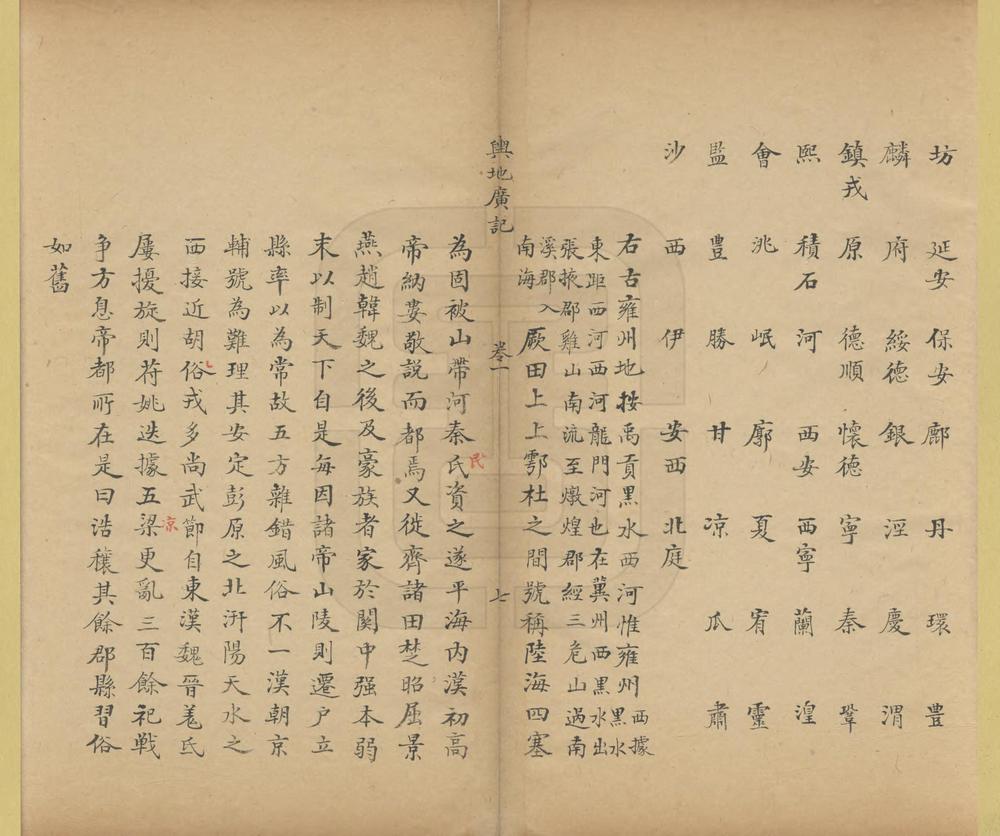 坊 延安 保安 鄜 丹 環 豊
麟 府 綏德 銀 涇 慶 渭
鎮戎 原 德順 懐德 寧 秦 鞏
熙 積石 河 西安 西寧 蘭 湟
會 洮 岷 廓 夏 宥 靈
監 豊 勝 甘 凉 瓜 肅
沙 西 伊 安西 北庭
右古雍州地按禹貢黒水西河惟雍州西據黒水
東距西河西河龍門河也在冀州西黒水出
張掖郡雞山南流至燉煌郡經三危山過南
溪郡入南海厥田上上鄠杜之間號稱陸海四塞
輿地廣記 卷一 七
為固被山帶河秦氏資之遂平海内漢初高
民
帝納婁敬説而都焉又徙齊諸田楚昭屈景
燕趙韓魏之後及豪族者家於関中强本弱
末以制天下自是每因諸帝山陵則遷户立
縣率以為常故五方雜錯風俗不一漢朝京
輔號為難理其安定彭原之北汧陽天水之
西接近胡俗戎多尚武節自東漢魏晉羗氏
屢擾旋則苻姚迭據五梁更亂三百餘祀戦
凉
争方息帝都所在是曰浩穰其餘郡縣習俗
如舊